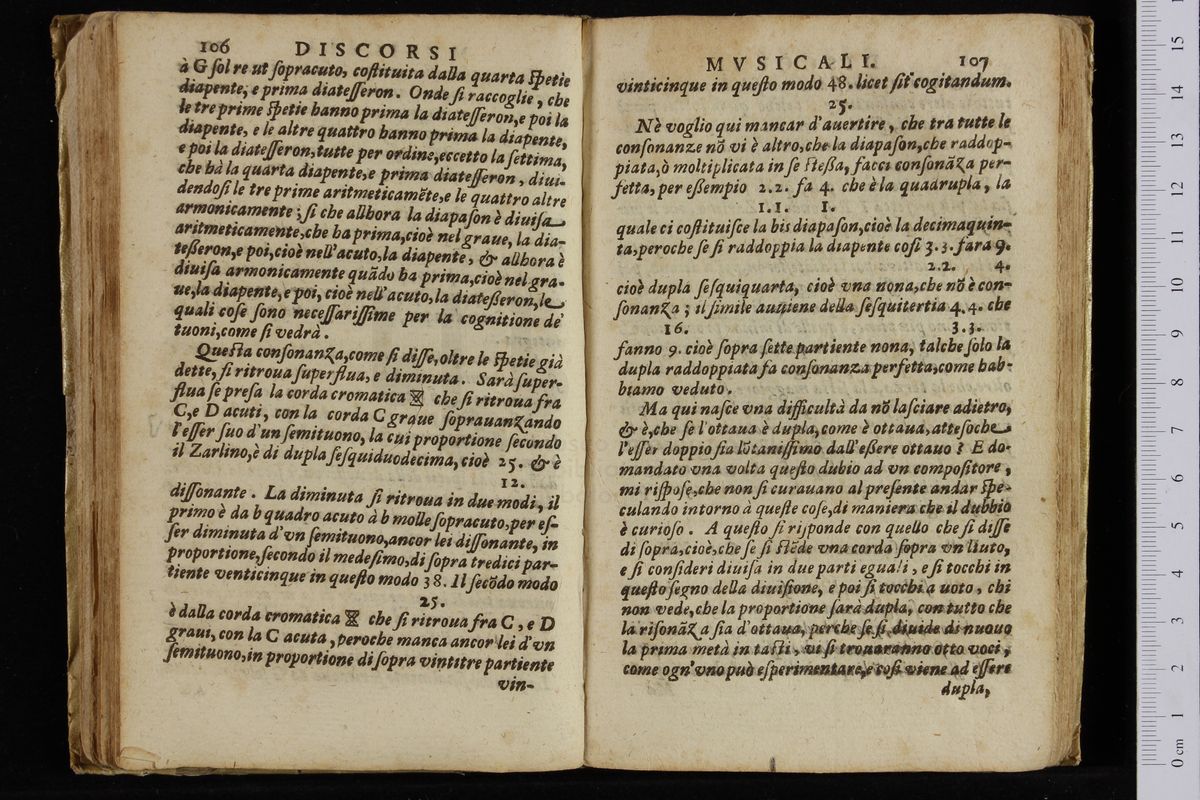 106 DISCORSI
à G sol re ut sopracuto, costituita dalla quarta spetie
diapente, e prima diatesseron. Onde si raccoglie, che
le tre prime spetie hanno prima la diatesseron, e poi la
diapente, e le altre quattro hanno prima la diapente,
e poi la diatesseron, tutte per ordine, eccetto la settima,
che hà la quarta diapente, e prima diatesseron, diui-
dendosi le tre prime aritmeticamẽte, e le quattro altre
armonicamente; si che allhora la diapason è diuisa
aritmeticamente, che ha prima, cioè nel graue, la dia-
teßeron, e poi, cioè nell'acuto, la diapente, & allhora è
diuisa armonicamente quãdo ha prima, cioè nel gra-
ue, la diapente, e poi, cioè nell'acuto, la diateßeron, le
quali cose sono necessarissime per la cognitione de'
tuoni, come si vedrà.
Questa consonanza, come si disse, oltre le spetie già
dette, si ritroua superflua, e diminuta. Sarà super-
flua se presa la corda cromatica che si ritroua fra
C, e D acuti, con la corda C graue soprauanzando
l'esser suo d'un semituono, la cui proportione secondo
il Zarlino, è di dupla sesquiduodecima, cioè 25. & è
12.
dissonante. La diminuta si ritroua in due modi, il
primo è da b quadro acuto à b molle sopracuto, per es-
ser diminuta d'vn semituono, ancor lei dissonante, in
proportione, secondo il medesimo, di sopra tredici par-
tiente venticinque in questo modo 38. Il secõdo modo
25.
è dalla corda cromatica che si ritroua fra C, e D
graui, con la C acuta, peroche manca ancor lei d'vn
semituono, in proportione di sopra vintitre partiente
vin-
MVSICALI. 107
vinticinque in questo modo 48. licet sit cogitandum.
25.
Nè voglio qui mancar d'auertire, che tra tutte le
consonanze nõ vi è altro, che la diapason, che raddop-
piata, ò moltiplicata in se steßa, facci consonãza per-
fetta, per eßempio 2.2. fa 4. che è la quadrupla, la
1.1. 1.
quale ci costituisce la bis diapason, cioè la decimaquin-
ta, peroche se si raddoppia la diapente cosi 3.3. fara 9.
2.2. 4.
cioè dupla sesquiquarta, cioè vna nona, che nõ è con-
sonanza; il simile auuiene della sesquitertia 4.4. che
16. 3.3.
fanno 9. cioè sopra sette partiente nona, talche solo la
dupla raddoppiata fa consonanza perfetta, come hab-
biamo veduto.
Ma qui nasce vna difficultà da nõ lasciare adietro,
& è, che se l'ottaua è dupla, come è ottaua, attesoche
l'esser doppio sia lõtanissimo dall'eßere ottauo? E do-
mandato vna volta questo dubio ad vn compositore,
mi rispose, che non si curauano al presente andar spe-
culando intorno à queste cose, di maniera che il dubbio
è curioso. A questo si risponde con quello che si disse
di sopra, cioè, che se si stẽde vna corda sopra vn liuto,
e si consideri diuisa in due parti eguali, e si tocchi in
questo segno della diuisione, e poi si tocchi a uoto, chi
non vede, che la proportione sarà dupla, con tutto che
la risonãza sia d'ottaua, perche se si diuide di nuouo
la prima metà in tasti, vi si trouaranno otto voci,
come ogn'vno può esperimentare, e cosi viene ad essere
dupla,
0 cm 1 2 3 4 5 6 7 8 9 10 11 12 13 14 15